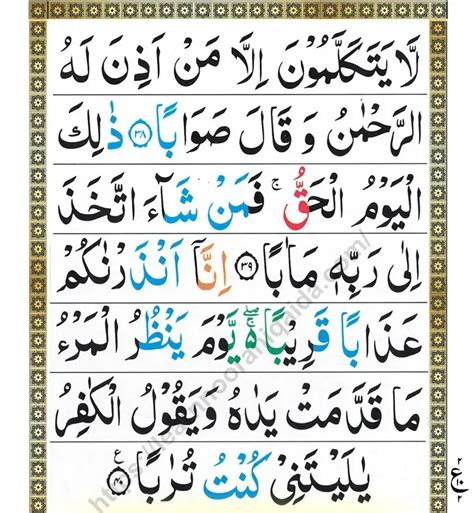 لَّا يَتَكَلَّمُوْنَ اِلَّا مَنْ اَذِنَ لَهُ
الرَّحْمٰنُ وَ قَالَ صَوَابًا ﴿۳۸﴾ ذٰلِكَ
الْيَوْمُ الْحَقُّ ۚ فَمَنْ شَآءَ اتَّخَذَ
اِلٰى رَبِّهٖ مَاٰبًا ﴿۳۹﴾ اِنَّاۤ اَنْذَرْنٰكُمْ
عَذَابًا قَرِيْبًا ۖۚ۬ يَّوْمَ يَنْظُرُ الْمَرْءُ
مَا قَدَّمَتْ يَدٰهُ وَيَقُوْلُ الْكٰفِرُ
يٰلَيْتَنِيْ كُنْتُ تُرٰبًا ﴿۴۰﴾
https://learnnooraniqaida.com/